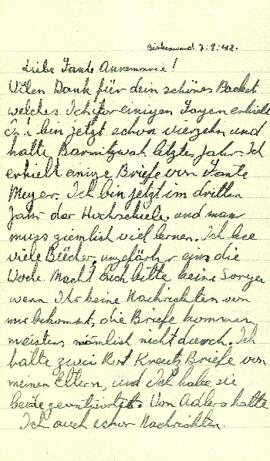 Birkenward 7.9.42.
Liebe Tante Annemarie!
Vilen Dank für dein schönes Packet
welches Ich for einigen Tagen erhielt
bin jetzt schon vierzehn und
hatte Barmitzwah letztes Jahr. Ich
erhielt einige Briefe von Tante
Meyer. Ich bin jetzt im dritten
Jahr der Hochschule, und man
muss ziemlich viel lernen. Ich lese
viele Bücher, ungefähr eins die
Woche. Macht Euch bitte keine Sorgen
wenn Ihr keine Nachrichten von
mir bekommt, die Briefe kommen
meistens nämlich nicht durch. Ich
hatte zwei Rot Kreutz Briefe von
meinen Eltern, und Ich habe sie
beide geantwortet. Von Adlers hatte
Ich auch schon Nachrichten.